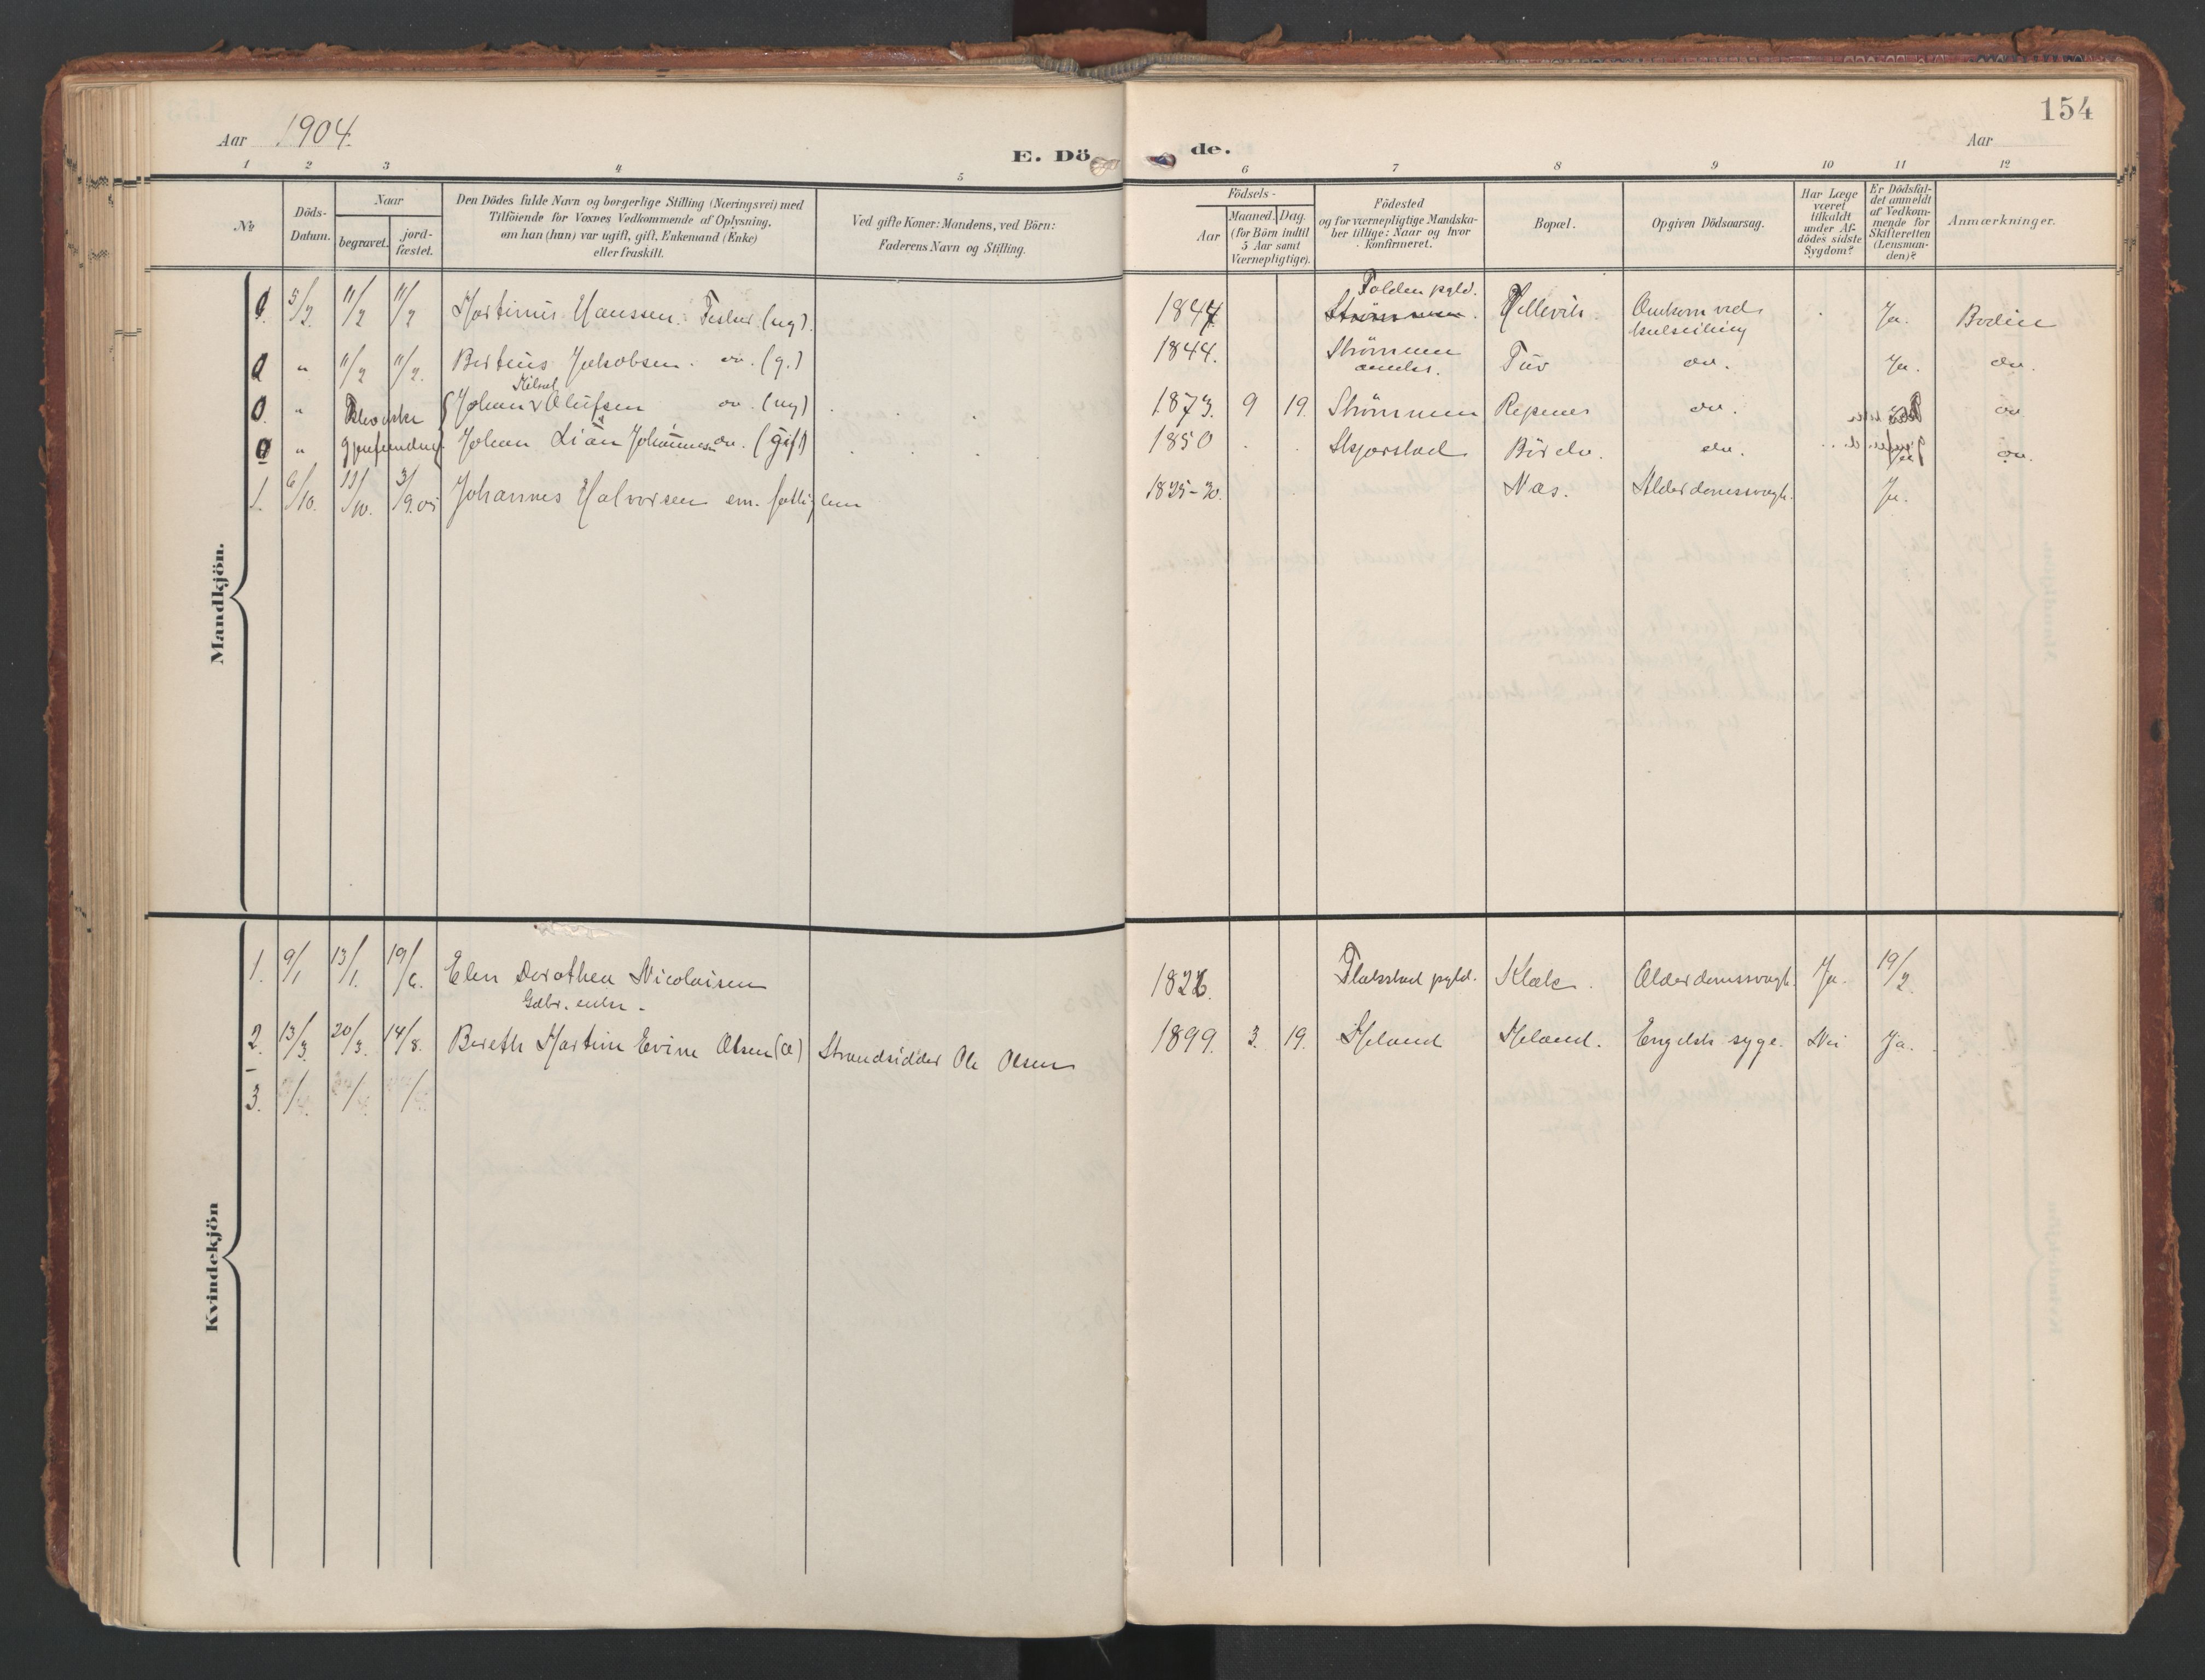 154
Aar 1904.
E. Dö de.
Aar
1 2 3 4 5 6 7 8 9 10 11 12
No
Döds-
Datum.
Naar
begravet.
jord-
fæstet.
Den Dödes fulde Navn og borgerlige Stilling (Næringsvei) med
Tilföiende for Voxnes Vedkommende af Oplysning,
om han (hun) var ugift, gift, Enkemand (Enke)
eller fraskilt.
Ved gifte Koner: Mandens, ved Börn:
Faderens Navn og Stilling.
Födsels-
Aar
Maaned. Dag.
(for Börn indtil
5 Aar samt
Værnepligtige).
Födested
og for værnepligtige Mandska-
ber tillige: Naar og hvor
konfirmeret.
Bopæl.
Opgiven Dödsaarsag.
Har Læge
været
tilkaldt
under Af-
dödes sidste
Sygdom?
Er Dödsfal-
det anmeldt
af Vedkom-
mende for
Skifteretten
(Lensman-
den)?
Anmærkninger.
Mandkjön.
0. 5/2. 11/2 11/2 Martinus Hanssen. Fisker (ug). 1844 Folden pgld. Strømmen. Omkom ved Ja. Bodin
0 " 11/2 11/2. Bertius Jakobsen. do. (g.) 1844. Strømmen Tuv do. Ja. do.
0. " Johan Olufsen do. (ug) 1873. 9 19. Strømmen Repnes do. do
0 " Johan Lian Johannessen do. (gift) 1850 Skjerstad do. do.
1. 6/10. 11/10. 3/9.05 Johannes Halvorsen em. fattiglem 1825-30. Næs. Alderdomssvagh. Ja.
Kvindekjön
1. 9/1 13/1. 19/6. Elen Dorothea Nicolaisen 1826. Flakstad pgld. Klæk. Alderdomssvagh. Ja. 19/2.
Gdbr. enke.
2. 13/3. 20/3. 14/8. Bereth Martine Evine Olsen (æ) Strandsidder Ole Olsen 1899. 3. 19. Meland Meland. Engelsk syge. Nei Ja.
3.